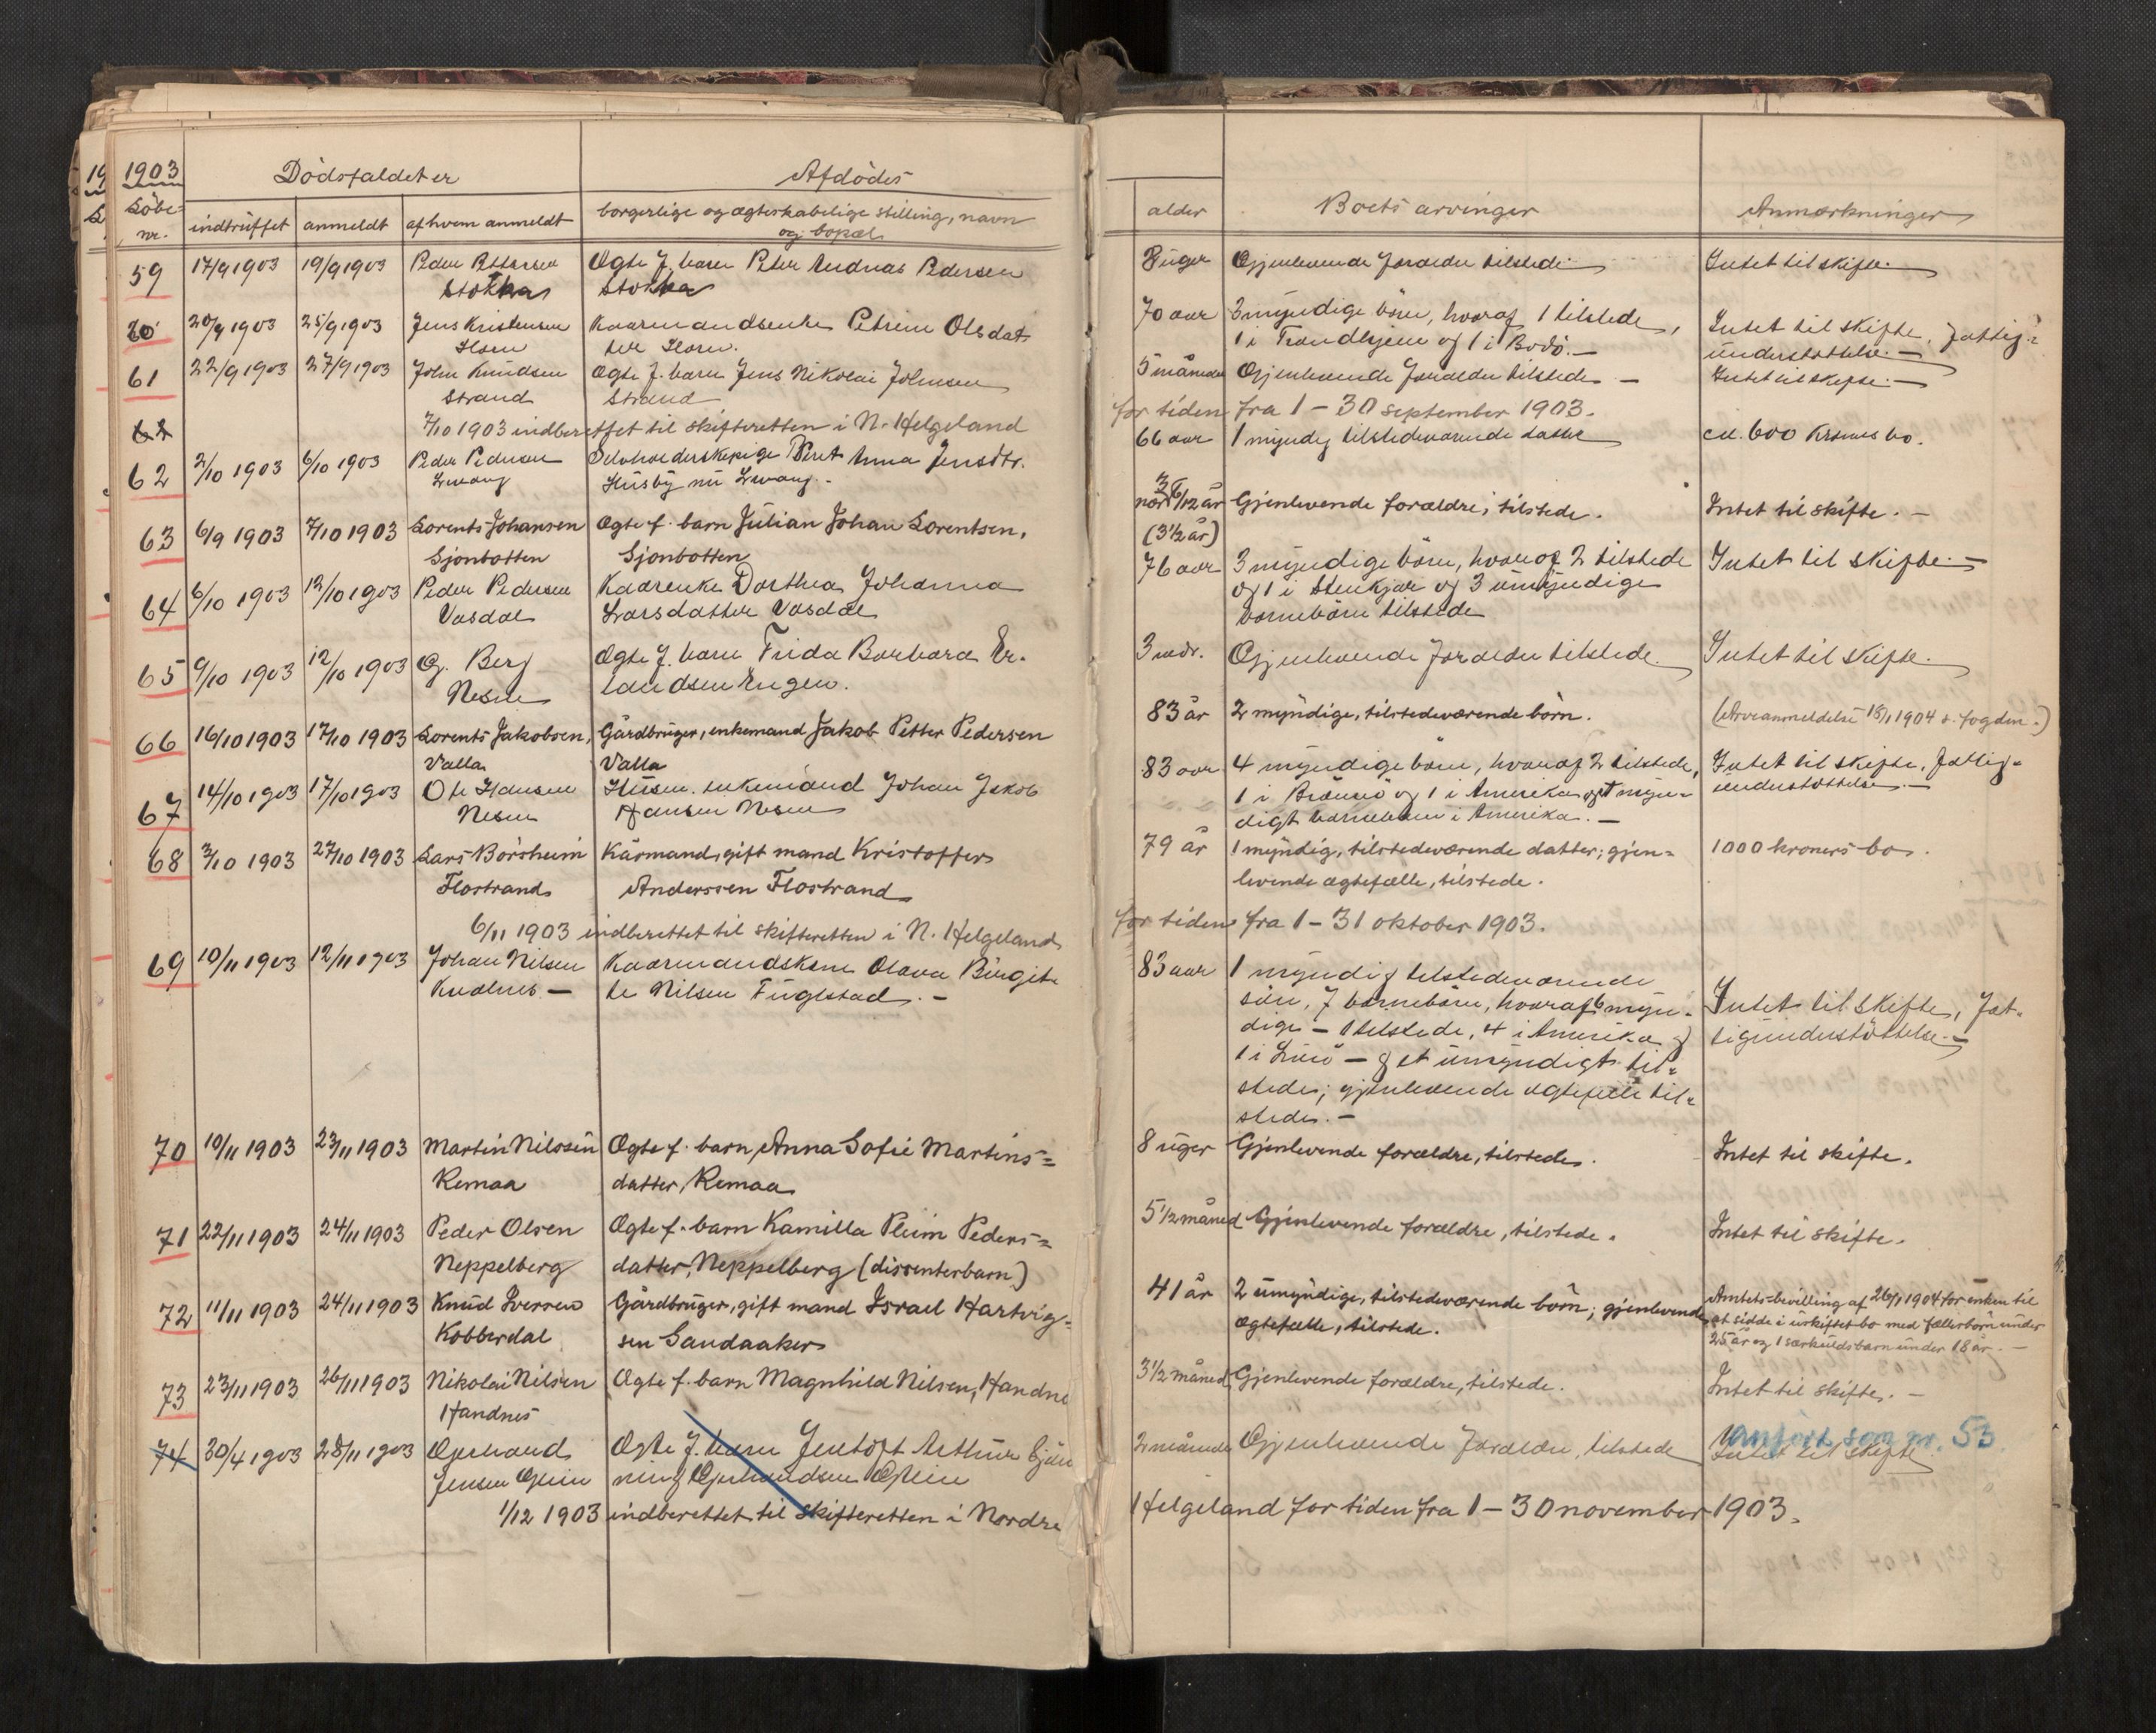 1903
Dödsfaldet er
Afdödes
Löbe-
nr.
indtruffet
anmeldt
af hvem anmeldt
borgerlige og ægteskabelige stilling, navn
og bopæl
alder
Boets arvinger
Anmærkninger
59 17/9 1903 19/9 1903 Peder Pettersen Ægte f. barn Peter Andreas Pedersen 8 uger Gjenlevende forældre tilstede. Intet til skifte.
Stokka Stokka
60 20/9 1903 25/9 1903 Jens Kristensen Kaarmandsenke Petrine Olsdat- 70 aar 3 myndige börn, hvoraf 1 tilstede, Intet til skifte. Fattig-
Horn ter Horn. 1 i Trondhjem og 1 i Bodö. – understöttelse. –
61 22/9 1903 27/9 1903 John Knudsen Ægte f. barn Jens Nikolai Johnsen 5 måneder Gjenlevende forældre tilstede – Intet til skifte. –
Strand Strand
62 7/10 1903 indberettet til skifteretten i N. Helgeland for tiden fra 1–30 september 1903.
62 2/10 1903 6/10 1903 Peder Pedersen Selvholderskepige Beret Anna Jensdtr. 66 aar 1 myndig tilstedeværende datter ca. 600 Kroners bo.
Levang Husby nu Levang. –
63 6/9 1903 7/10 1903 Lorents Johansen Ægte f. barn Julian Johan Lorentsen, 3 6/12 år Gjenlevende forældre, tilstede. Intet til skifte. –
Sjonbotten Sjonbotten (3 1/2 år)
64 6/10 1903 12/10 1903 Peder Pedersen Kaarenke Dorthea Johanna 76 aar 3 myndige börn, hvoraf 2 tilstede Intet til skifte. –
Vasdal Larsdatter Vasdal og 1 i Stenkjær og 3 umyndige
barnebörn tilstede
65 9/10 1903 12/10 1903 O. Berg Ægte f. barn Frida Barbara Er- 3 mdr. Gjenlevende forældre tilstede. Intet til skifte.
Nesna landsen Engen.
66 16/10 1903 17/10 1903 Lorents Jakobsen, Gårdbruger, enkemand Jakob Petter Pedersen 83 år 2 myndige, tilstedeværende börn. (Arveanmeldelse 18/1 1904 t. fogden.)
Valla Valla
67 14/10 1903 17/10 1903 Ole Hansen Husm. enkemand Johan Jakob 83 aar 4 myndige börn, hvoraf 2 tilstede, Intet til skifte. Fattig-
Nesna Hansen Nesna 1 i Brönnö og 1 i Amerika og 1 myn- understöttelse. –
digt barnebarn i Amerika. –
68 3/10 1903 27/10 1903 Lars Börsheim Kårmand, gift mand Kristoffer 79 år 1 myndig, tilstedeværende datter; gjen- 1000 kroners bo.
Flostrand Anderssen Flostrand levende ægtefælle, tilstede.
6/11 1903 indberettet til skifteretten i N. Helgeland for tiden fra 1–31 oktober 1903.
69 10/11 1903 12/11 1903 Johan Nilsen Kaarmandskone Olava Birgit- 83 aar 1 myndig tilstedeværende
– te Nilsen Fuglstad. – sön, 7 barnebörn, hvoraf 6 myn- Intet til skifte, Fat-
dige – 1 tilstede, 4 i Amerika og tigunderstöttelse. –
1 i Lurö – og et umyndigt til-
stede; gjenlevende ægtefælle til-
stede. –
70 10/11 1903 23/11 1903 Martin Nilssen Ægte f. barn, Anna Sofie Martins- 8 uger Gjenlevende forældre, tilstede. Intet til skifte.
Remaa datter, Remaa
71 22/11 1903 24/11 1903 Peder Olsen Ægte f. barn Kamilla Pleim Peders- 5 1/2 måned Gjenlevende forældre, tilstede. Intet til skifte.
Neppelberg datter, Neppelberg (dissenterbarn)
72 11/11 1903 24/11 1903 Knud Iversen Gårdbruger, gift mand Israel Hartvig- 41 år 2 umyndige, tilstedeværende börn; gjenlevende Amtets bevilling af 26/1 1904 for enken til
Kobberdal sen Sandaaker ægtefælle, tilstede. at sidde i uskiftet bo med fællesbörn under
25 år og 1 særkuldsbarn under 18 år. –
73 23/11 1903 26/11 1903 Nikolai Nilsen Ægte f. barn Magnhild Nilsen, Handne 3 1/2 måned, Gjenlevende forældre, tilstede. Intet til skifte. –
Handnes
74 30/4 1903 28/11 1903 Gerhard Ægte f. barn Jentoft Arthur 2 måneder Gjenlevende forældre, tilstede anfört som nr. 53
Intet til skifte
Jensen
1/12 1903 indberettet til skifteretten i Nordre Helgeland for tiden fra 1–30 november 1903.